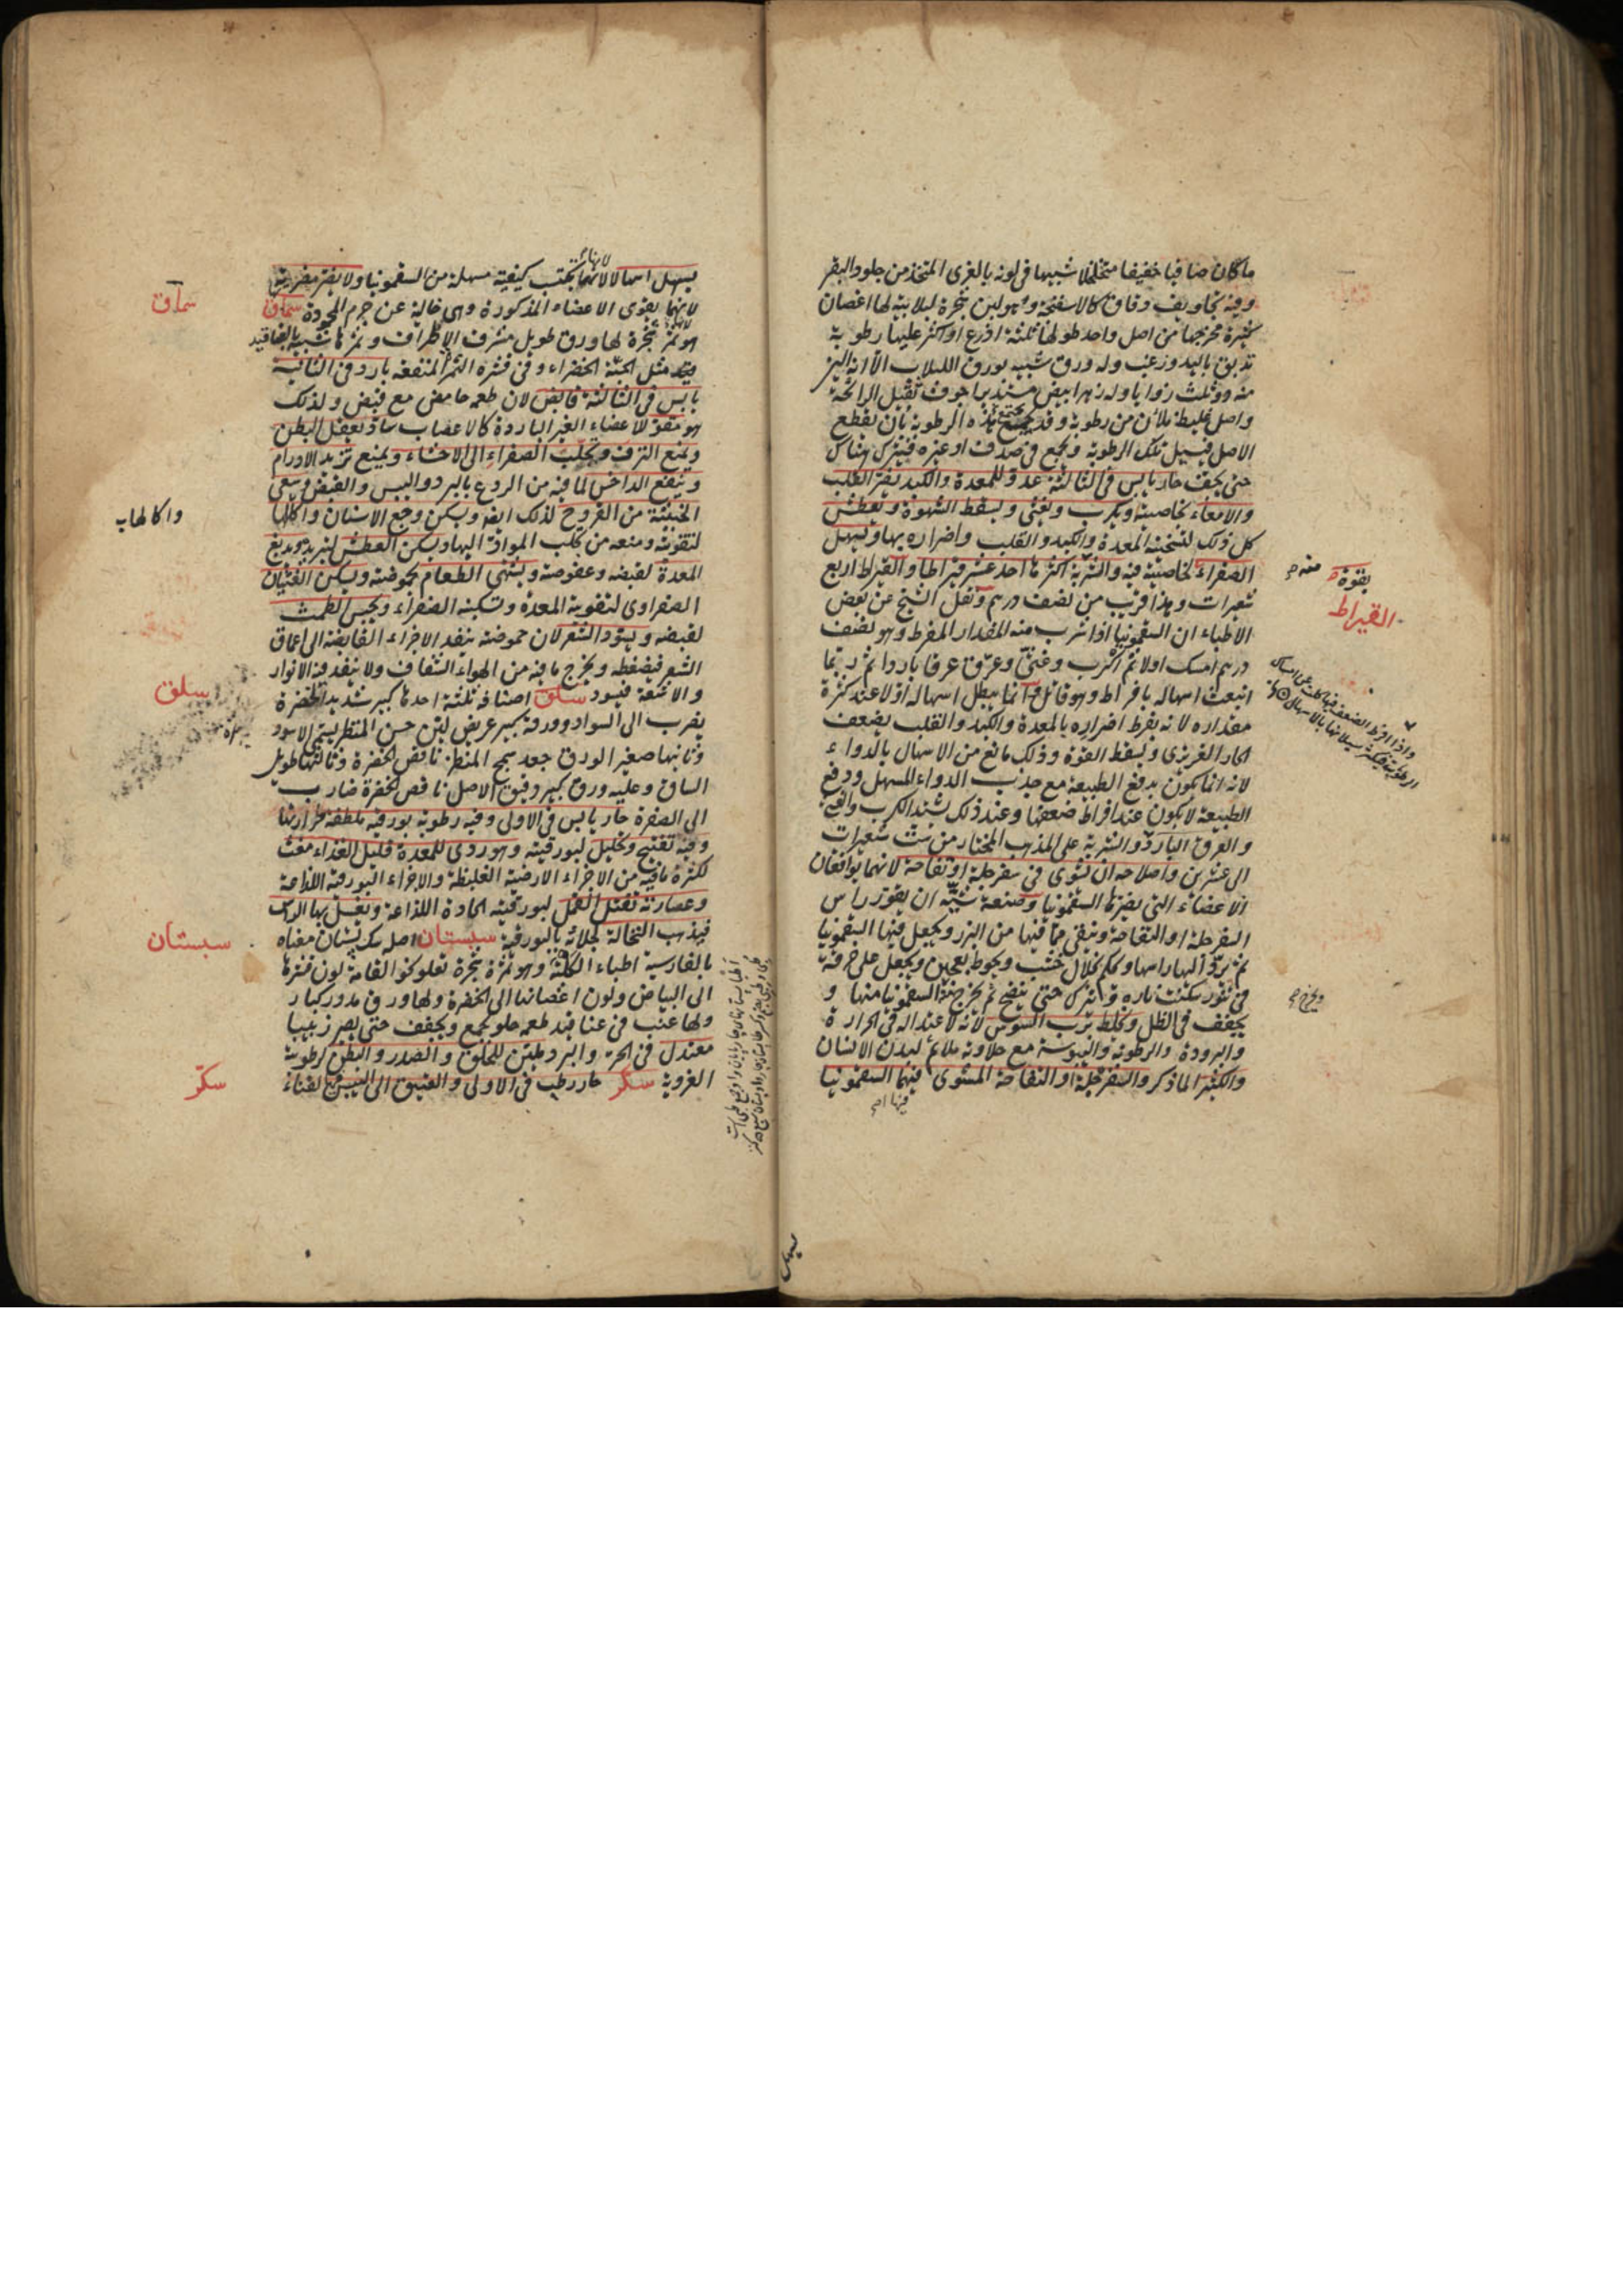 ما كان صافيا خفيفا متخلخلا شبيها فى لونه بالغرى المتخذ من جلود البقر
وفيه تجاويف دقاق كالاسفنجة وهو لبن شجرة لبلابية لها اغصان
كثيرة مخرجها من اصل واحد طولها ثلثة اذرع او اكثر عليها رطوبة
تدبق باليد وزغب وله ورق شبيه بورق اللبلاب الا انه الين
منه وثلث زوايا وله زهر ابيض مستدير اجوف ثقيل الرائحة
واصل غليظ ملآن من رطوبة وقد تجمع هذه الرطوبة بان يقطع
الاصل فيسيل تلك الرطوبة وتجمع فى صدف او غيره فيترك هناك
حتى يجف حار يابس فى الثالثة عدو للمعدة والكبد يضر القلب
والامعاء لخاصيته ويكرب ويغثى ويسقط الشهوة ويعطش
كل ذلك لتسخينه المعدة والكبد والقلب واضراره بها ويسهل
الصفراء لخاصية فيه والشربة اكثرها احد عشر قيراطا والقيراط اربع
شعيرات وهذا قريب من نصف درهم ونقل الشيخ عن بعض
الاطباء ان السقمونيا اذا شرب منه المقدار المفرط وهو نصف
درهم امسك اولا ثم اكرب وغثى وعرق عرقا باردا ثم ربما
انبعث اسهاله بافراط وهو قاتل وانما يبطل اسهاله اولا عند كثرة
مقداره لانه يفرط اضراره بالمعدة والكبد والقلب يضعف
الحار الغريزى ويسقط القوة وذلك مانع من الاسهال بالدواء
لانه انما يكون بدفع الطبيعة مع جذب الدواء المسهل ودفع
الطبيعة لا يكون عند افراط ضعفها وعند ذلك يشتد الكرب والغثى
والعرق البارد والشربة على المذهب المختار من ست شعيرات
الى عشرين واصلاحه ان يشوى فى سفرجلة او تفاحة لانهما يوافقان
الاعضاء التى يضرها السقمونيا وصنعة شيه ان يقور راس
السفرجلة او التفاحة وينقى مما فيها من البزر ويجعل فيها السقمونيا
ثم يرد اليها راسها ويحكم بخلال خشب ويحوط بعجين ويجعل على خرقة
فى تنور سكنت ناره ويترك حتى ينضج ثم يخرج السقمونيا منها و
يجفف فى الظل ويخلط برب السوس لانه لاعتداله فى الحرارة
والبرودة والرطوبة واليبوسة مع حلاوته ملائم لبدن الانسان
والكثيرا لما ذكر والسفرجلة او التفاحة المشوى فيهما السقمونيا
بقوة
منه
القيراط
يسهل اسهالا لانها تكتسب كيفية مسهلة من السقمونيا ولا يضر مضرته
لانهما يقوى الاعضاء المذكورة وهى خالية عن جرم المجردة سماق
هو ثمر شجرة لها ورق طويل مشرف الاطراف وثمرها شبيه بالعناقيد
مثل الحبة الخضراء وفى قشره الثمر المنفعه بارد فى الثانية
يابس فى الثالثة قابض لان طعمه حامض مع قبض ولذلك
هو مقو للاعضاء الغير الباردة كالاعصاب يعقل البطن
ويمنع النزف وتحلب الصفراء الى الاحشاء ويمنع تزيد الاورام
وينفع الداخس لما فيه من الردع بالبرد واليبس والقبض وسعى
الخبيثة من القروح لذلك ايضا ويسكن وجع الاسنان واكالها
لتقويته ومنعه من تحلب المواد اليها ويسكن العطش لتبريده ويدبغ
المعدة لقبضه وعفوصته ويشهى الطعام بحموضته ويسكن الغثيان
الصفراوى لتقوية المعدة وتسكينه الصفراء ويحبس الطمث
لقبضه ويسود الشعر لان حموضته ينفذ الاجزاء القابضة الى اعماق
الشعر فيضغطه ويخرج ما فيه من الهواء الشفاف ولا ينفذ فيه الانوار
والاشعة فيسود سلق اصنافه ثلثة احدها كبير شديد الخضرة
يضرب الى السواد وورقه كبير عريض لين حسن المنظر يسمى الاسود
وثانيها صغير الورق جعد سمج المنظر ناقص الخضرة وثالثها طويل
الساق وعليه ورق كبير دقيق الاصل ناقص الخضرة ضارب
الى الصفرة حار يابس فى الاولى وفيه رطوبة بورقية ملطفة لحرارتها
وفيه تفتيح وتحليل لبورقيته وهو ردى للمعدة قليل الغذاء مغث
لكثرة ما فيه من الاجزاء الارضية الغليظة والاجزاء البورقية اللذاعة
وعصارته تقتل القمل لبورقيته الحادة اللذاعة ويغسل بها الراس
فيذهب النخالة لجلائه بالبورقية سبستان اصله سك پستان معناه
بالفارسية اطباء الكلبة وهو ثمرة شجرة تعلو كنحو القامة لون قشرها
الى البياض ولون اغصانها الى الخضرة ولها ورق مدور كبار
ولها عنب فى عناقيد طعمه حلو يجمع ويجفف حتى يصير زبيبا
معتدل فى الحر والبرد ملين للحلق والصدر والبطن لرطوبته
الغروية سكر حار رطب فى الاولى والعتيق الى اليبس لفناء
سماق
واكالها
سلق
سبستان
سكر